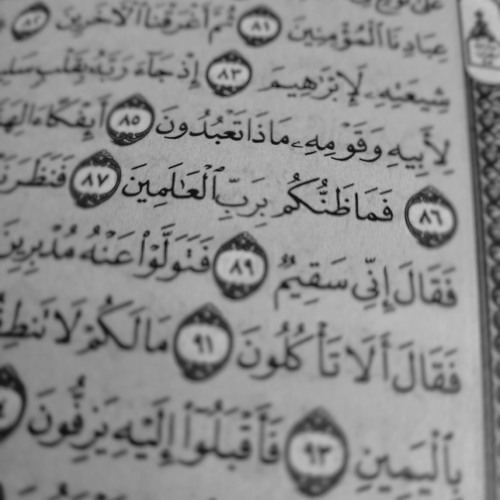 عِبَادِنَا ٱلْمُؤْمِنِينَ ٨١ ثُمَّ أَغْرَقْنَا ٱلْءَاخَرِينَ ٨٢
شِيعَتِهِۦ لَإِبْرَٰهِيمَ ٨٣ إِذْ جَآءَ رَبَّهُۥ بِقَلْبٍ
لِأَبِيهِ وَقَوْمِهِۦ مَاذَا تَعْبُدُونَ ٨٥ أَئِفْكًا ءَالِهَةً
٨٦ فَمَا ظَنُّكُم بِرَبِّ ٱلْعَٰلَمِينَ ٨٧
فَقَالَ إِنِّى سَقِيمٌ ٨٩ فَتَوَلَّوْا۟ عَنْهُ مُدْبِرِينَ
فَقَالَ أَلَا تَأْكُلُونَ ٩١ مَا لَكُمْ لَا
بِٱلْيَمِينِ ٩٣ فَأَقْبَلُوٓا۟ إِلَيْهِ يَزِفُّونَ